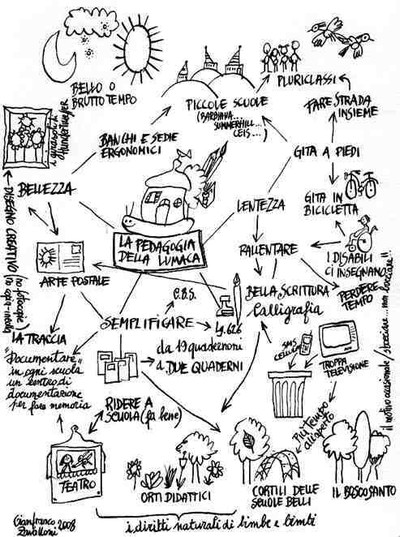 BELLO O
BRUTTO TEMPO
PLURICLASSI
PICCOLE SCUOLE
(BARBIANA...
SUMMERHILL...
CEIS...)
FARE STRADA
INSIEME
BANCHI E SEDIE
ERGONOMICI
GITA A PIEDI
BELLEZZA
LENTEZZA
GITA IN
BICICLETTA
DISEGNO CREATIVO
LA PEDAGOGIA
DELLA LUMACA
RALLENTARE
I DISABILI
CI INSEGNANO
ARTE POSTALE
PERDERE
TEMPO
BELLA SCRITTURA
Calligrafia
LA TRACCIA
SEMPLIFICARE
SMS
CELLULARI
TROPPA
TELEVISIONE
"Documentare"
in ogni scuola
un centro di
documentazione
per fare memoria
da 19 quadernoni
a DUE QUADERNI
RIDERE A
SCUOLA (fa bene)
Più tempo
all'aperto
TEATRO
ORTI DIDATTICI
CORTILI DELLE
SCUOLE BELLI
IL BOSCO SANTO
i diritti naturali di bimbe e bimbi
Gianfranco 2008
Zavalloni